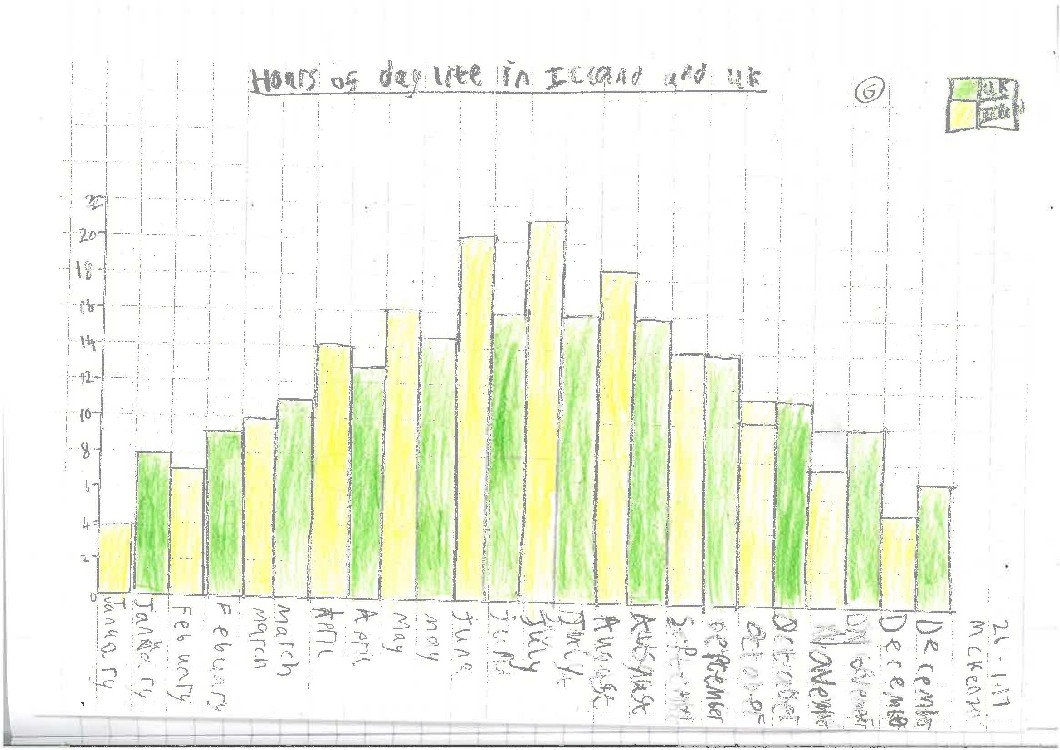 Hours of day lite in Iceland and UK
G
UK
22
20
18
16
14
12
10
8
6
4
2
0
January
January
Febuary
Febuary
March
March
April
April
May
may
June
June
July
July
August
August
September
October
October
Novemb
Decemb
Decemb
Mckenzi